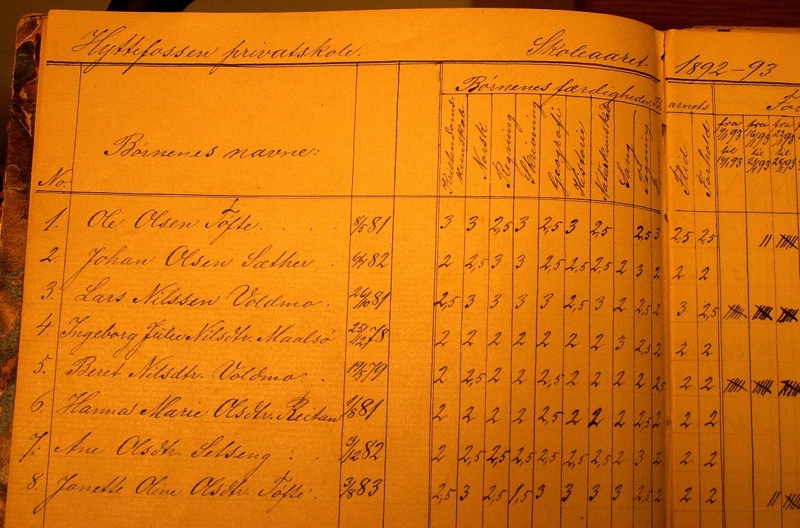 Hyttefossen privatskole. Skoleaaret 1892-93
Børnenes færdigheder
Børnenes navne:
No.
Kristendoms-kundskab Norsk Regning Skrivning Geografi Historie Sang Tegning Flid Forhold
fra fra fra
til til til
1. Ole Olsen Tøfte. 81 3 3 2,5 3 2,5 3 2,5 2,5 3 2,5 2,5
2 Johan Olsen Sæther 82 2 2,5 3 3 2,5 2,5 2,5 2 3 2 2 2
3. Lars Nilssen Voldmo. 26/10 81 2,5 3 3 3 3 2,5 3 2 2,5 2 3 2,5
4. Ingeborg Julie Nilsdtr. Maalsø 25/12 78 2 2 2 2 2 2 2 3 2,5 2 2 2
5. Beret Nilsdtr. Voldmo. 79 2 2,5 2 2 2,5 2 2 2 2 2,5 2 2
6. Hanna Marie Olsdtr. Reitan 81 2 2 2 2 2,5 2 2 2 2,5 2 2 2
7. Ane Olsdtr. Setseng 82 2 2,5 2,5 2,5 2,5 2,5 2,5 2 3 2 2 2
8. Janette Oline Olsdtr. Tøfte. 83 2,5 3 2,5 1,5 3 3 3 3 2,5 2 2 2